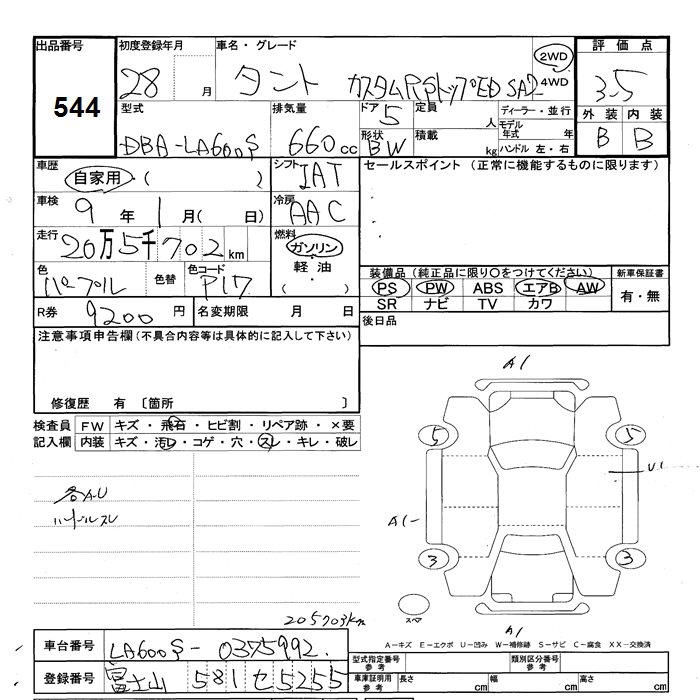 出品番号
544
初度登録年月
28 月
車名・グレード
タント カスタムRSトップED SA2
2WD
4WD
評価点
3.5
外装 内装
B B
型式
DBA-LA600S
排気量
660 cc
ドア
5
定員
人
形状
BW
積載
kg
ディーラー・並行
モデル年式 年
ハンドル 左・右
車歴
自家用 ( )
シフト
IAT
車検
9 年 1 月 ( 日)
冷房
AAC
走行
20万5千702km
燃料
ガソリン
軽油
( ・ )
色
パープル
色替
色コード
P17
R券
9200 円
名変期限 月 日
セールスポイント (正常に機能するものに限ります)
装備品 (純正品に限り○をつけてください)
PS PW ABS エアB AW
SR ナビ TV カワ
新車保証書
有・無
後日品
注意事項申告欄 (不具合内容等は具体的に記入して下さい)
修復歴 有 〔箇所 〕
検査員
記入欄
FW キズ・飛石・ヒビ割・リペア跡・×要
内装 キズ・汚レ・コゲ・穴・スレ・キレ・破レ
各A.U
ハンドルスレ
A1
5 5
U1
A1
3 3
スペア
A1
205703km
A−キズ E−エクボ U−凹み W−補修跡 S−サビ C−腐食 XX−交換済
車台番号
LA600S-0375992
登録番号
富士山 581 セ 5255
型式指定番号
参考
類別区分番号
参考
車庫証明用
参考
長さ cm
幅 cm
高さ cm